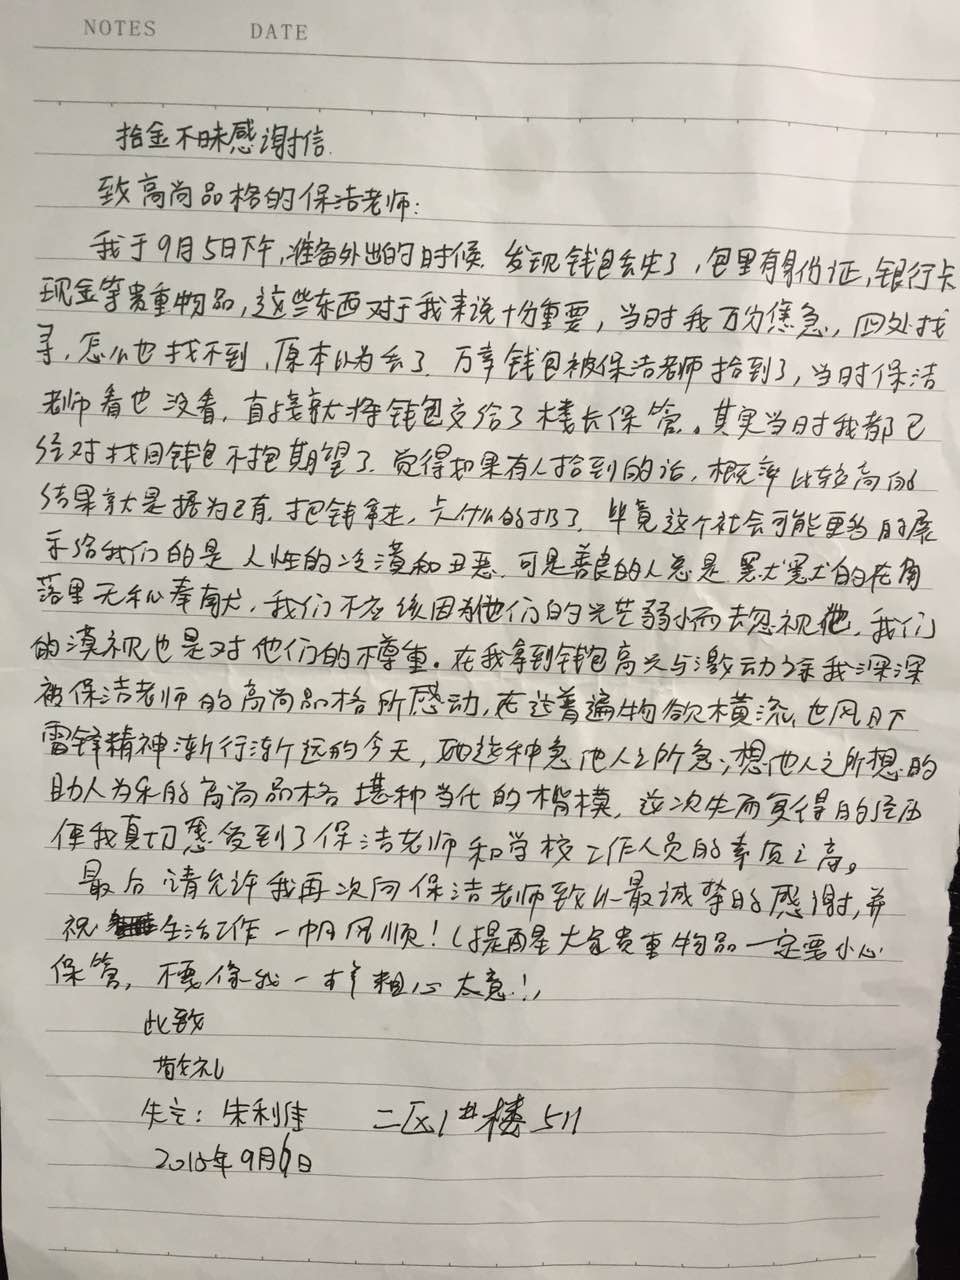 NOTES DATE
拾金不昧感谢信.
致高尚品格的保洁老师:
我于9月5日下午,准备外出的时候.发现钱包丢失了,包里有身份证,银行卡
现金等贵重物品,这些东西对于我来说十份重要,当时我万分焦急,四处找
寻,怎么也找不到,原本以为丢了.万幸钱包被保洁老师拾到了,当时保洁
老师看也没看,直接就将钱包交给了楼长保管。其实当时我都已
经对找回钱包不抱期望了.觉得如果有人拾到的话,概率比较高的
结果就是据为己有.把钱拿走,卡什么的扔了.毕竟这个社会可能更多的展
示给我们的是人性的冷漠和丑恶.可是善良的人总是默默的在角
落里无私奉献,我们不应该因为他们的光芒弱小而去忽视他,我们
的漠视也是对他们的不尊重。在我拿到钱包高兴与激动之余我深深
被保洁老师的高尚品格所感动,在这普遍物欲横流,世风日下
雷锋精神渐行渐远的今天,她这种急他人之所急,想他人之所想的
助人为乐的高尚品格堪称当代的楷模,这次失而复得的经历
使我真切感受到了保洁老师和学校工作人员的素质之高。
最后请允许我再次向保洁老师致以最诚挚的感谢,并
祝生活工作一帆风顺!(提醒大家贵重物品一定要小心
保管,不要像我一样粗心大意!)
此致
敬礼
失主:朱利佳 二区1#楼511
年9月日